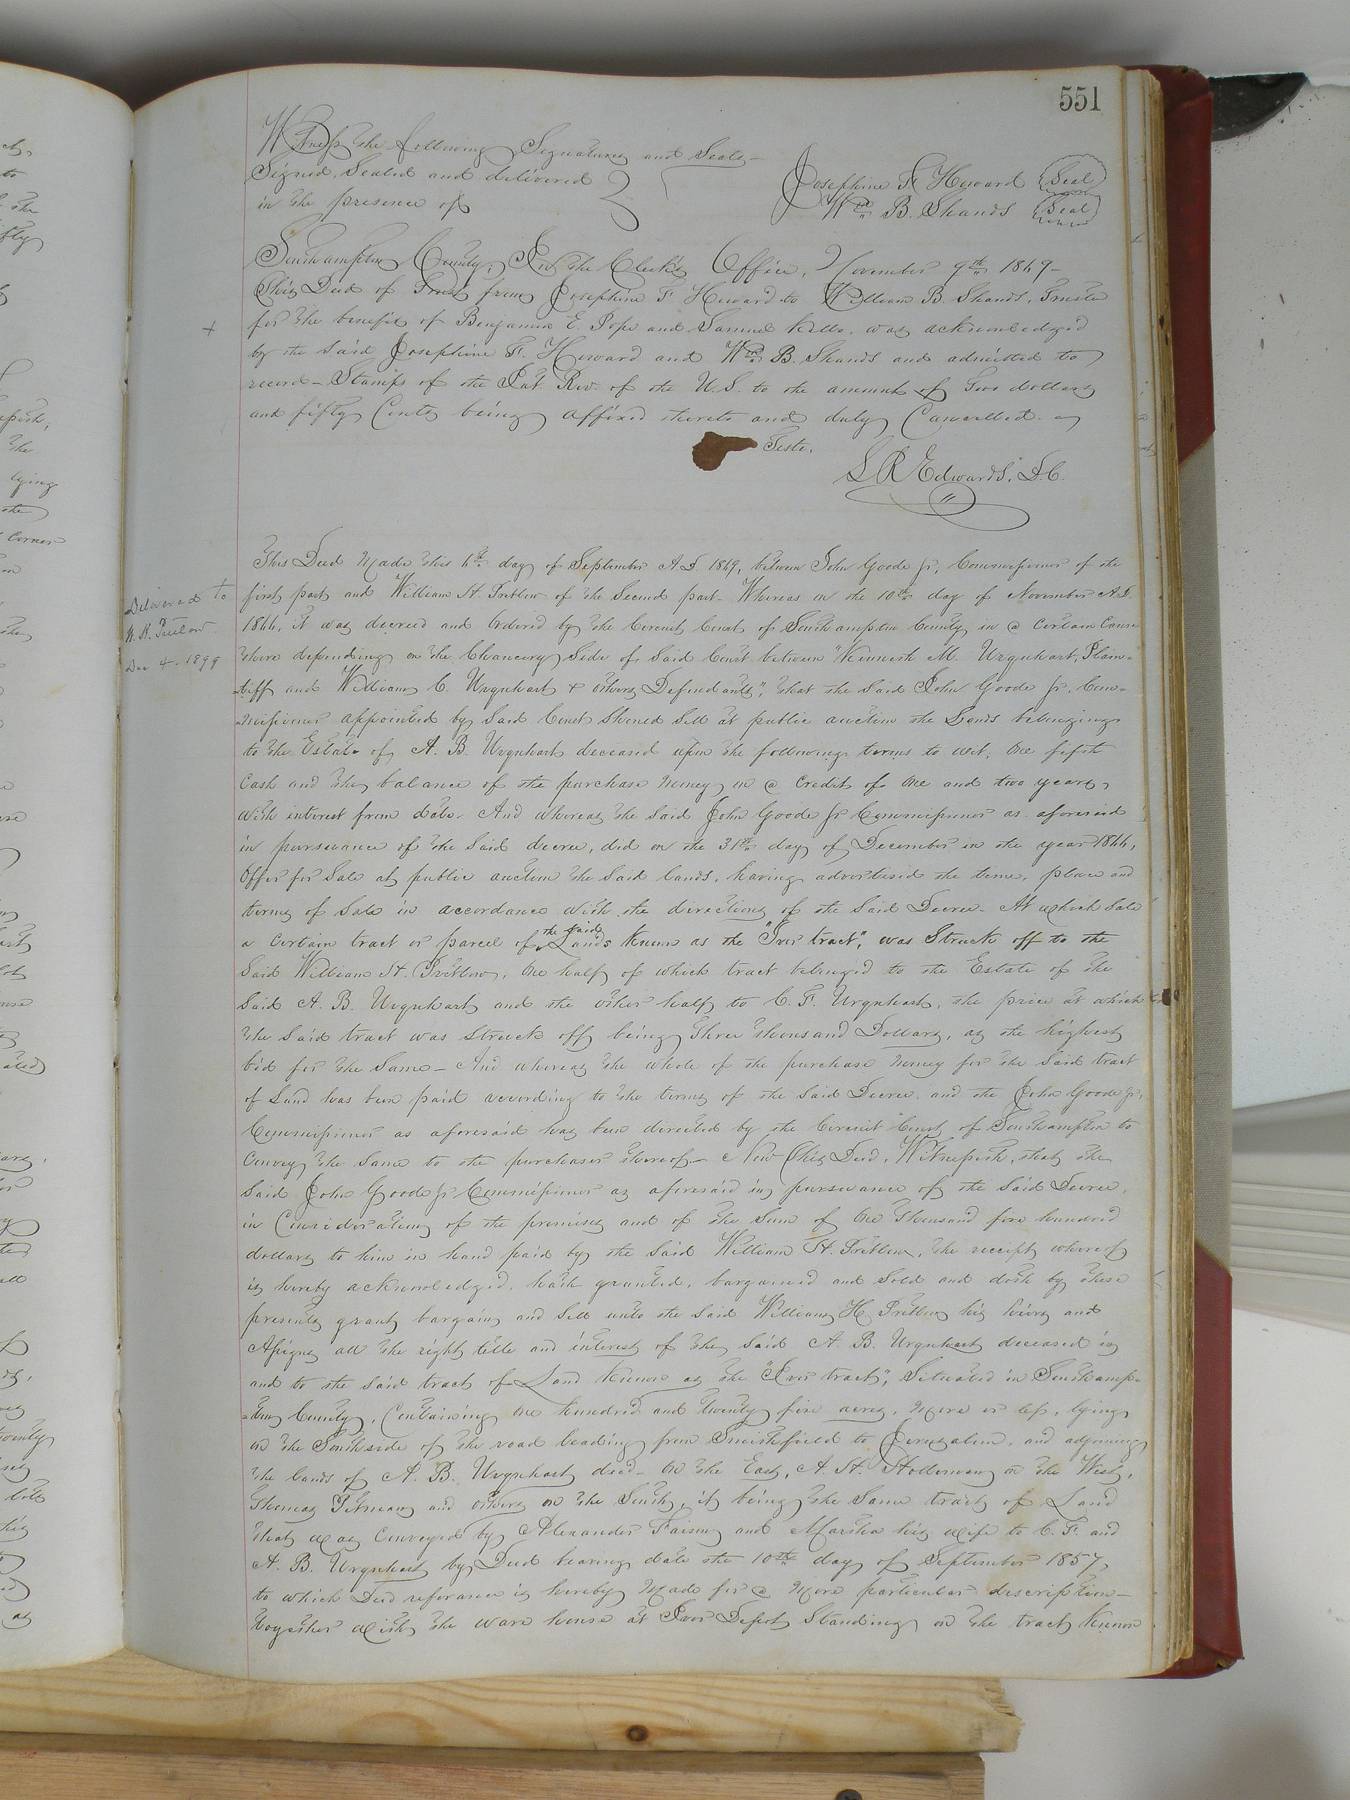 551
Witness the following Signatures and Seals—
Signed, Sealed and delivered
in the presence of
Josephine F. Howard Seal
Wm B. Shands Seal
Southampton County, In the Clerk's Office, November 9th 1869—
This Deed of Trust from Josephine F. Howard to William B. Shands, Trustee
for the benefit of Benjamin E. Pope and Samuel Kello, was acknowledged
by the said Josephine F. Howard and Wm B. Shands and admitted to
record— Stamps of the Int. Rev. of the U.S. to the amount of Two dollars
and fifty Cents being affixed thereto and duly Cancelled.
Teste,
L R Edwards, D.C.
Delivered to
W. H. Pretlow
Dec 4. 1899
This Deed Made this 6th day of September A.D. 1869, between John Goode Jr, Commissioner of the
first part and William H. Pretlow of the Second part— Whereas on the 10th day of November A.D.
1866, it was decreed and Ordered by the Circuit Court of Southampton County in a Certain Cause
there depending on the Chancery Side of Said Court between "Kenneth M. Urquhart, Plain-
-tiff and William C. Urquhart & others Defendants", that the Said John Goode Jr, Com-
-missioner appointed by Said Court Should Sell at public auction the Lands belonging
to the Estate of A. B. Urquhart deceased upon the following terms to wit, One fifth
Cash and the balance of the purchase Money on a Credit of One and two years,
With interest from date— And whereas the said John Goode Jr Commissioner as aforesaid
in pursuance of the Said decree, did on the 31st day of December in the year 1866,
Offer for Sale at public auction the Said lands, having advertised the time, place and
terms of Sale in accordance with the directions of the Said Decree— At which Sale
a Certain tract or parcel of the said Lands Known as the "Ivor tract", was Struck off to the
Said William H. Pretlow, One half of which tract belonged to the Estate of the
Said A. B. Urquhart and the other half to C. F. Urquhart, the price at which
the Said tract was Struck off being Three thousand Dollars, as the highest
bid for the Same— And whereas the whole of the purchase Money for the Said tract
of Land has been paid according to the terms of the Said Decree, and the John Goode Jr,
Commissioner as aforesaid has been directed by the Circuit Court of Southampton to
Convey the Same to the purchaser thereof— Now This Deed, Witnesseth, that the
Said John Goode Jr Commissioner as aforesaid in pursuance of the Said Decree,
in Consideration of the premises and of the Sum of One Thousand five hundred
dollars to him in hand paid by the Said William H. Pretlow, the receipt whereof
is hereby acknowledged, hath granted, bargained and Sold and doth by these
presents grant bargain and Sell unto the Said William H Pretlow his heirs and
Assigns all the right title and interest of the Said A. B. Urquhart deceased in
and to the Said tract of Land Known as the "Ivor tract", Situated in Southamp-
-ton County, Containing One hundred and twenty five acres, More or less, lying
on the South side of the road leading from Smithfield to Jerusalem, and adjoining
the lands of A. B. Urquhart decd— On the East, A. H. Holleman on the West,
Thomas Pitman and others on the South, it being the Same tract of Land
that was Conveyed by Alexander Faison and Martha his wife to C. F. and
A. B. Urquhart by Deed bearing date the 10th day of September 1857,
to which Deed reference is hereby Made for a More particular description—
Together With the ware house at Ivor Depot Standing on the tract Known